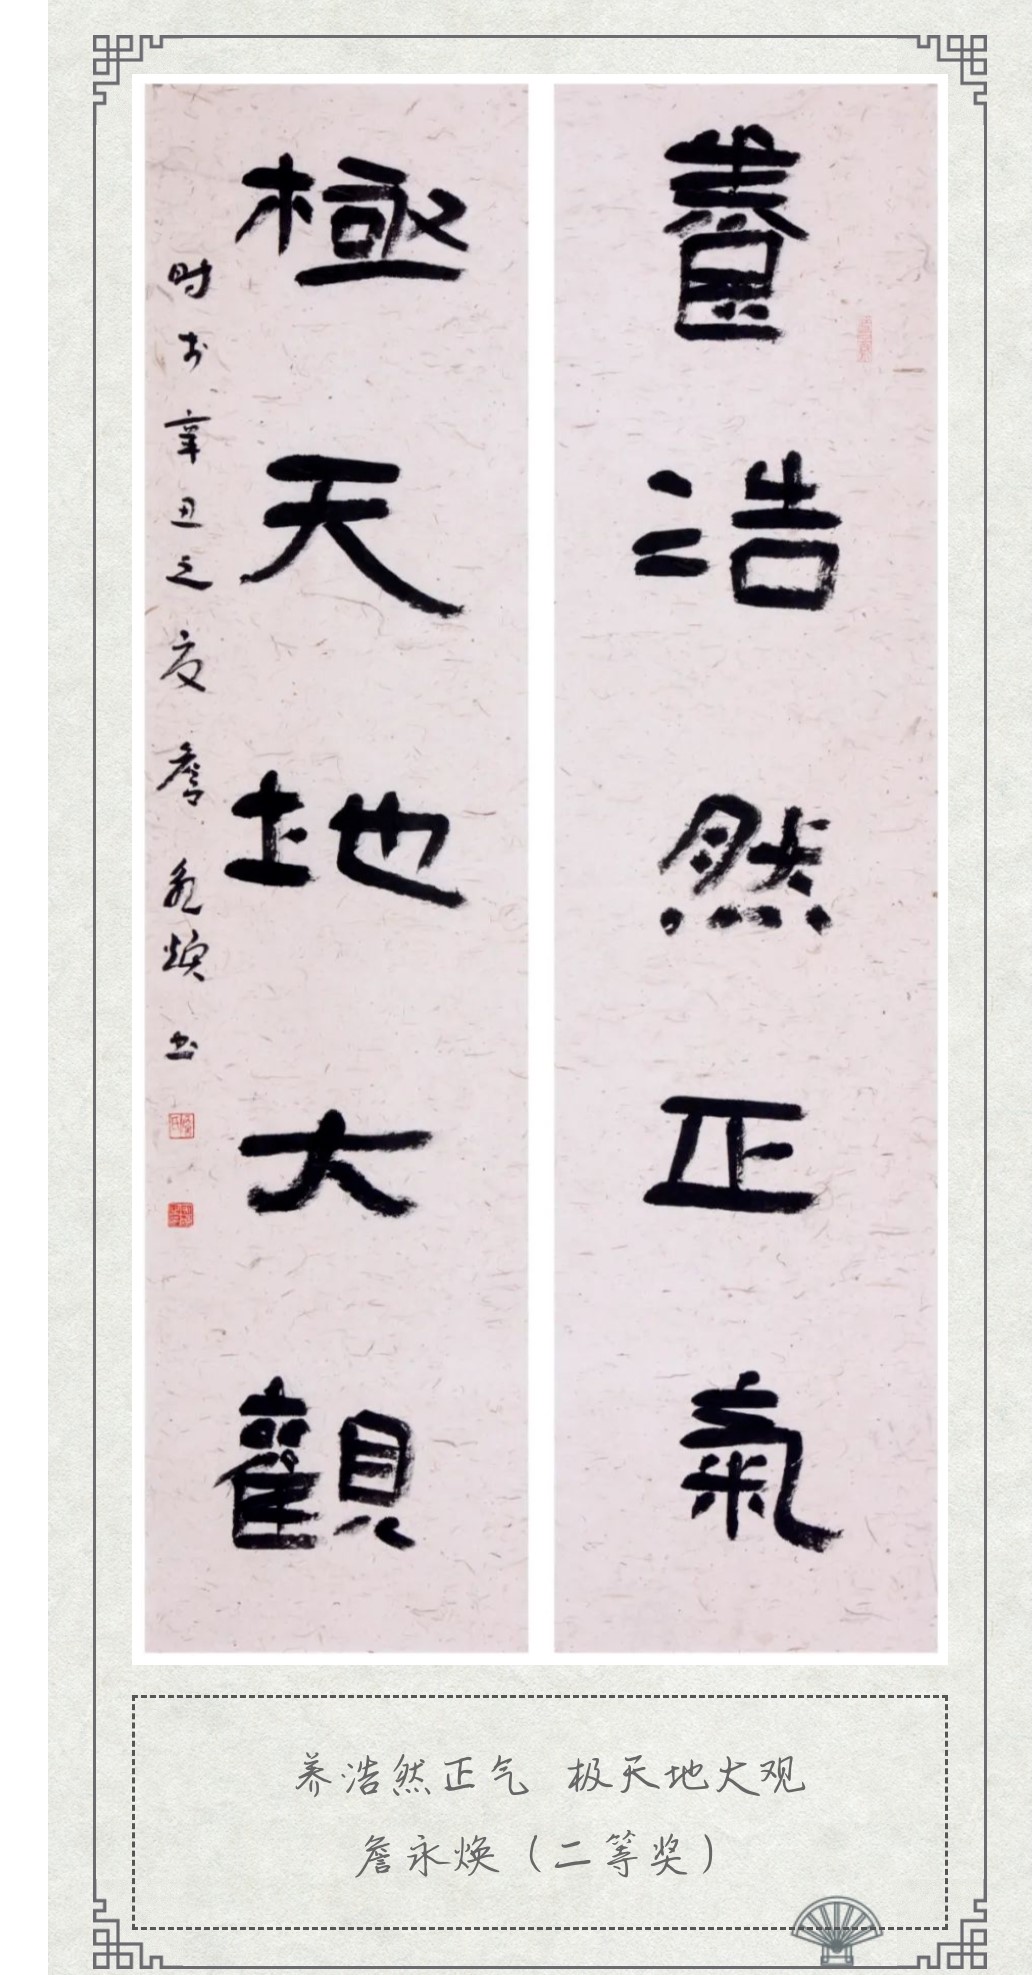 養浩然正氣
極天地大觀
时于辛丑之夏詹永焕书
养浩然正气 极天地大观
詹永焕（二等奖）